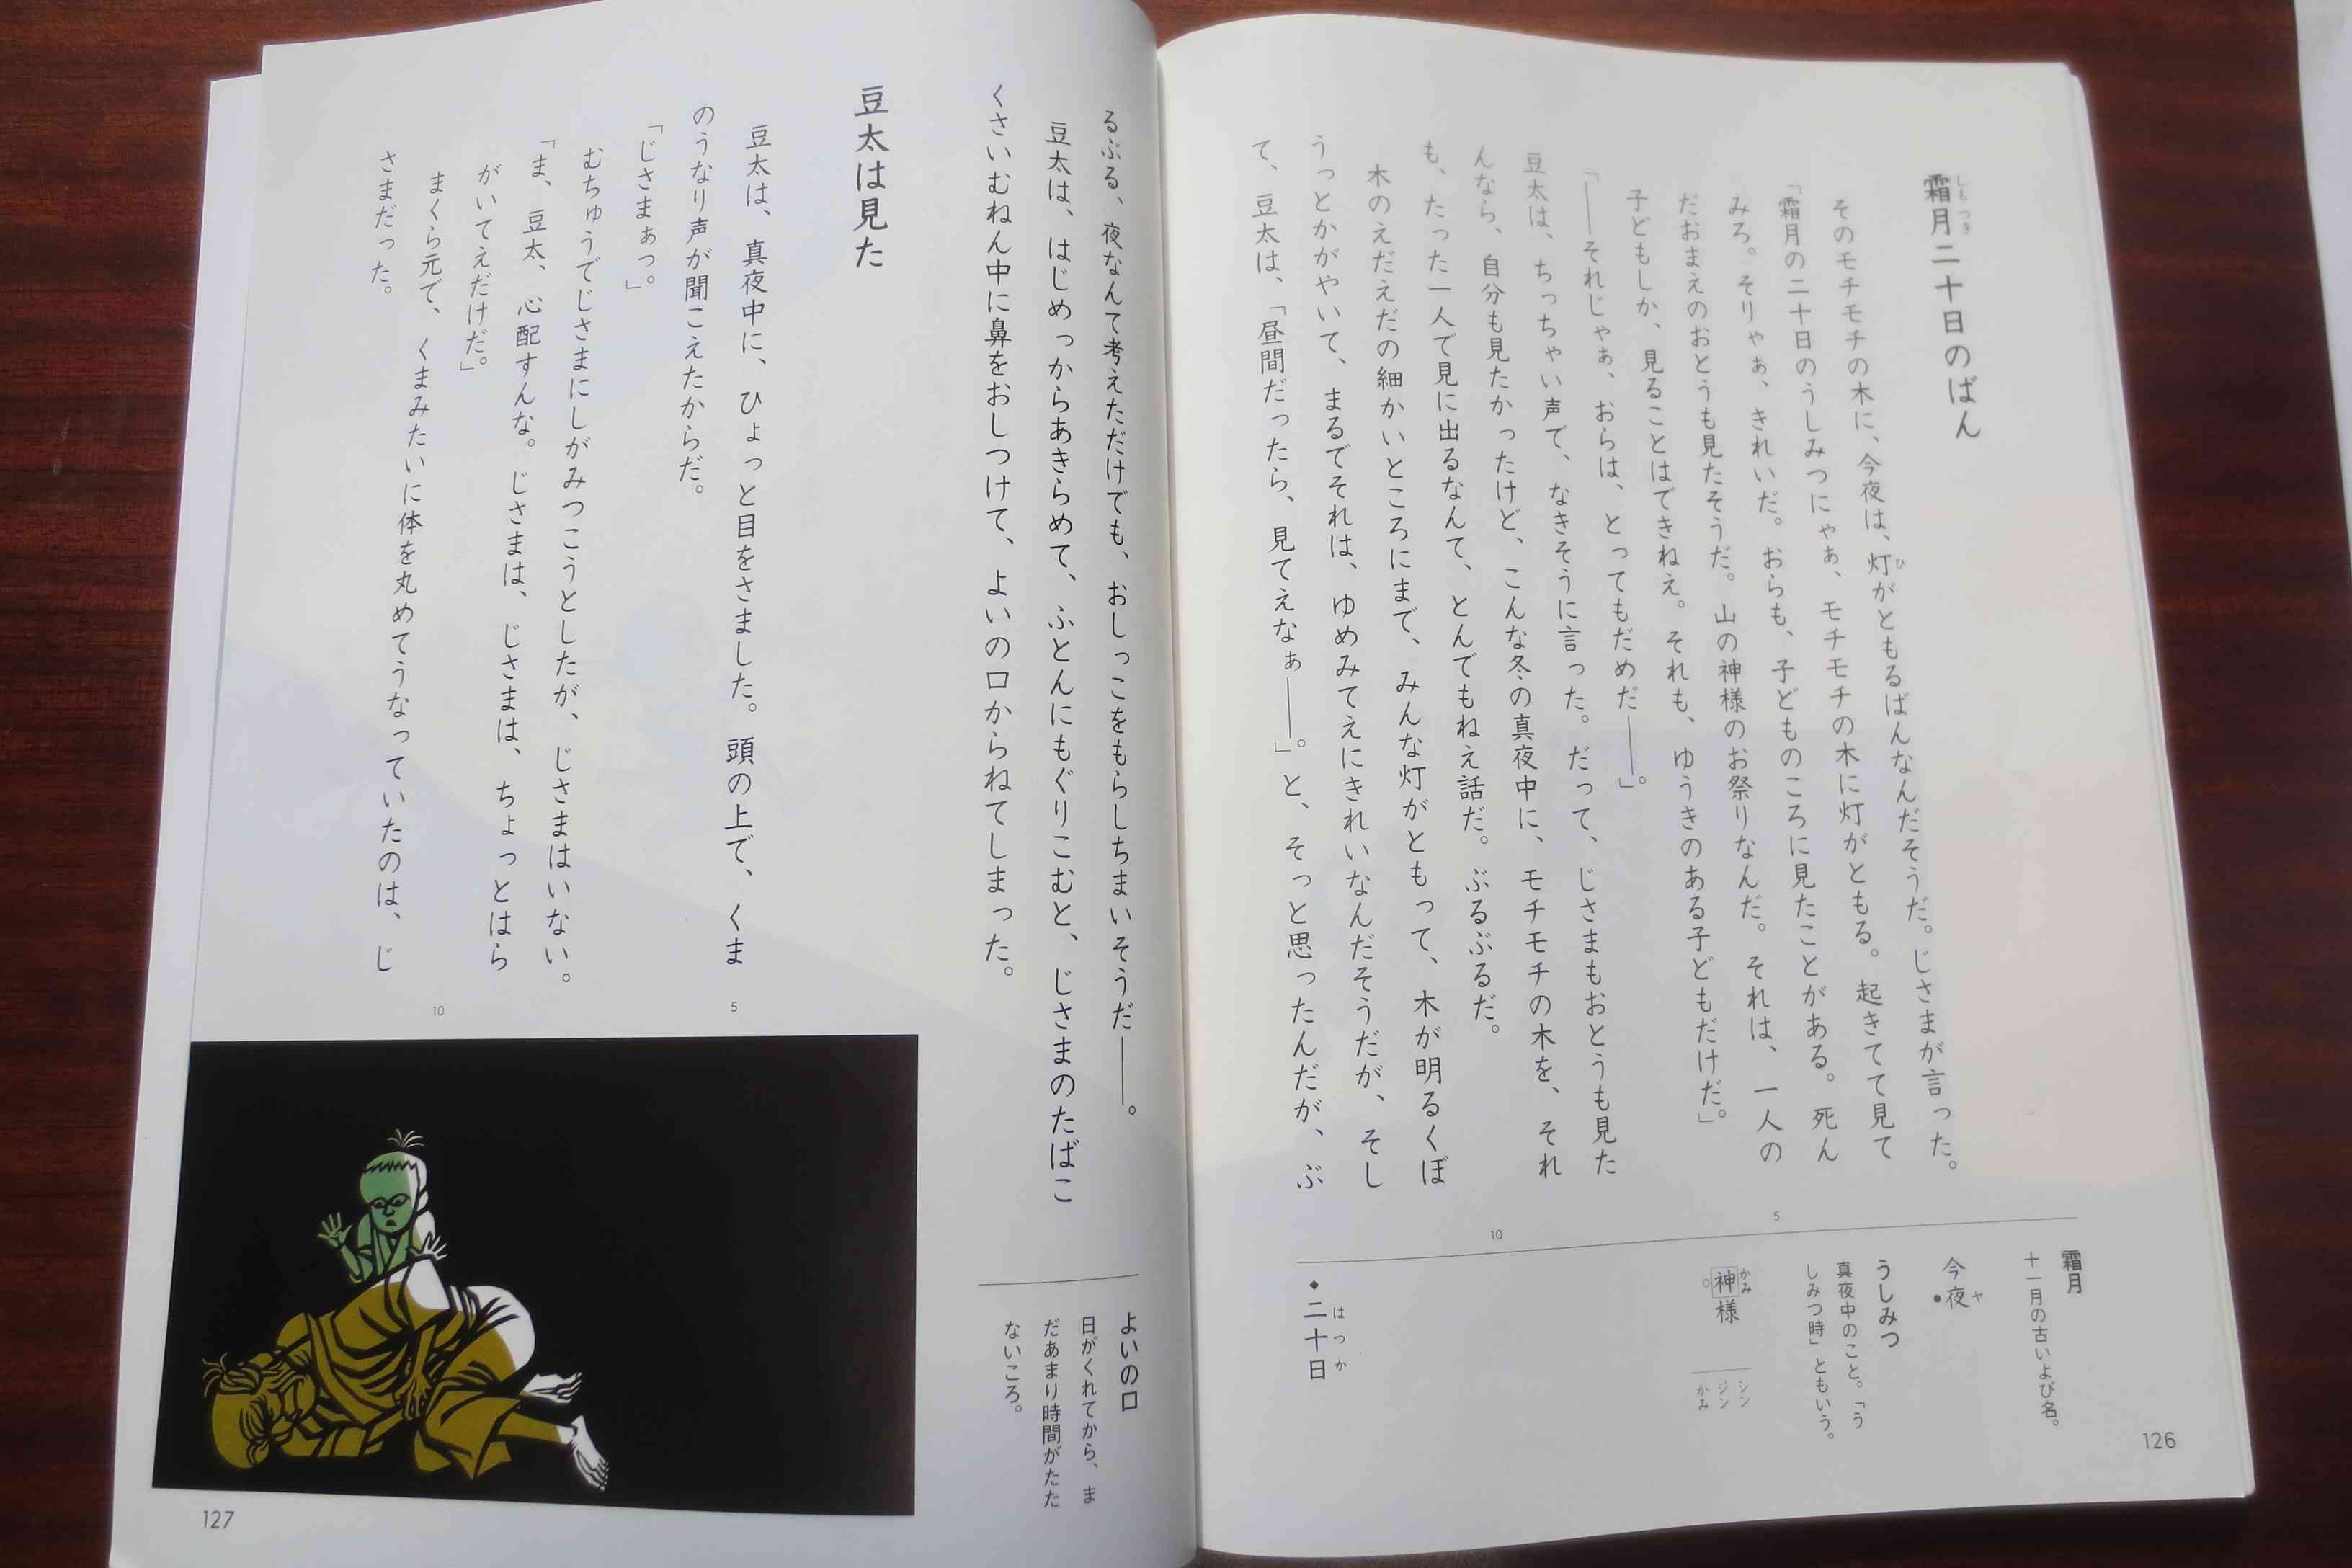 霜月二十日のばん
しもつき
そのモチモチの木に、今夜は、灯がともるばんなんだそうだ。じさまが言った。
ひ
「霜月の二十日のうしみつにゃぁ、モチモチの木に灯がともる。起きてて見て
みろ。そりゃぁ、きれいだ。おらも、子どものころに見たことがある。死ん
だおまえのおとうも見たそうだ。山の神様のお祭りなんだ。それは、一人の
子どもしか、見ることはできねえ。それも、ゆうきのある子どもだけだ。」
「――それじゃぁ、おらは、とってもだめだ――。」
豆太は、ちっちゃい声で、なきそうに言った。だって、じさまもおとうも見た
んなら、自分も見たかったけど、こんな冬の真夜中に、モチモチの木を、それ
も、たった一人で見に出るなんて、とんでもねえ話だ。ぶるぶるだ。
木のえだえだの細かいところにまで、みんな灯がともって、木が明るくぼ
うっとかがやいて、まるでそれは、ゆめみてえにきれいなんだそうだが、そし
て、豆太は、「昼間だったら、見てえなぁ――。」と、そっと思ったんだが、ぶ
5
10
霜月
十一月の古いよび名。
今夜
ヤ
うしみつ
真夜中のこと。「う
しみつ時」ともいう。
神様
かみ
シン
ジン
かみ
◆二十日
はつか
126
るぶる、夜なんて考えただけでも、おしっこをもらしちまいそうだ――。
豆太は、はじめっからあきらめて、ふとんにもぐりこむと、じさまのたばこ
くさいむねん中に鼻をおしつけて、よいの口からねてしまった。
豆太は見た
豆太は、真夜中に、ひょっと目をさました。頭の上で、くま
のうなり声が聞こえたからだ。
「じさまぁっ。」
むちゅうでじさまにしがみつこうとしたが、じさまはいない。
「ま、豆太、心配すんな。じさまは、じさまは、ちょっとはら
がいてえだけだ。」
まくら元で、くまみたいに体を丸めてうなっていたのは、じ
さまだった。
5
10
よいの口
日がくれてから、ま
だあまり時間がたた
ないころ。
127